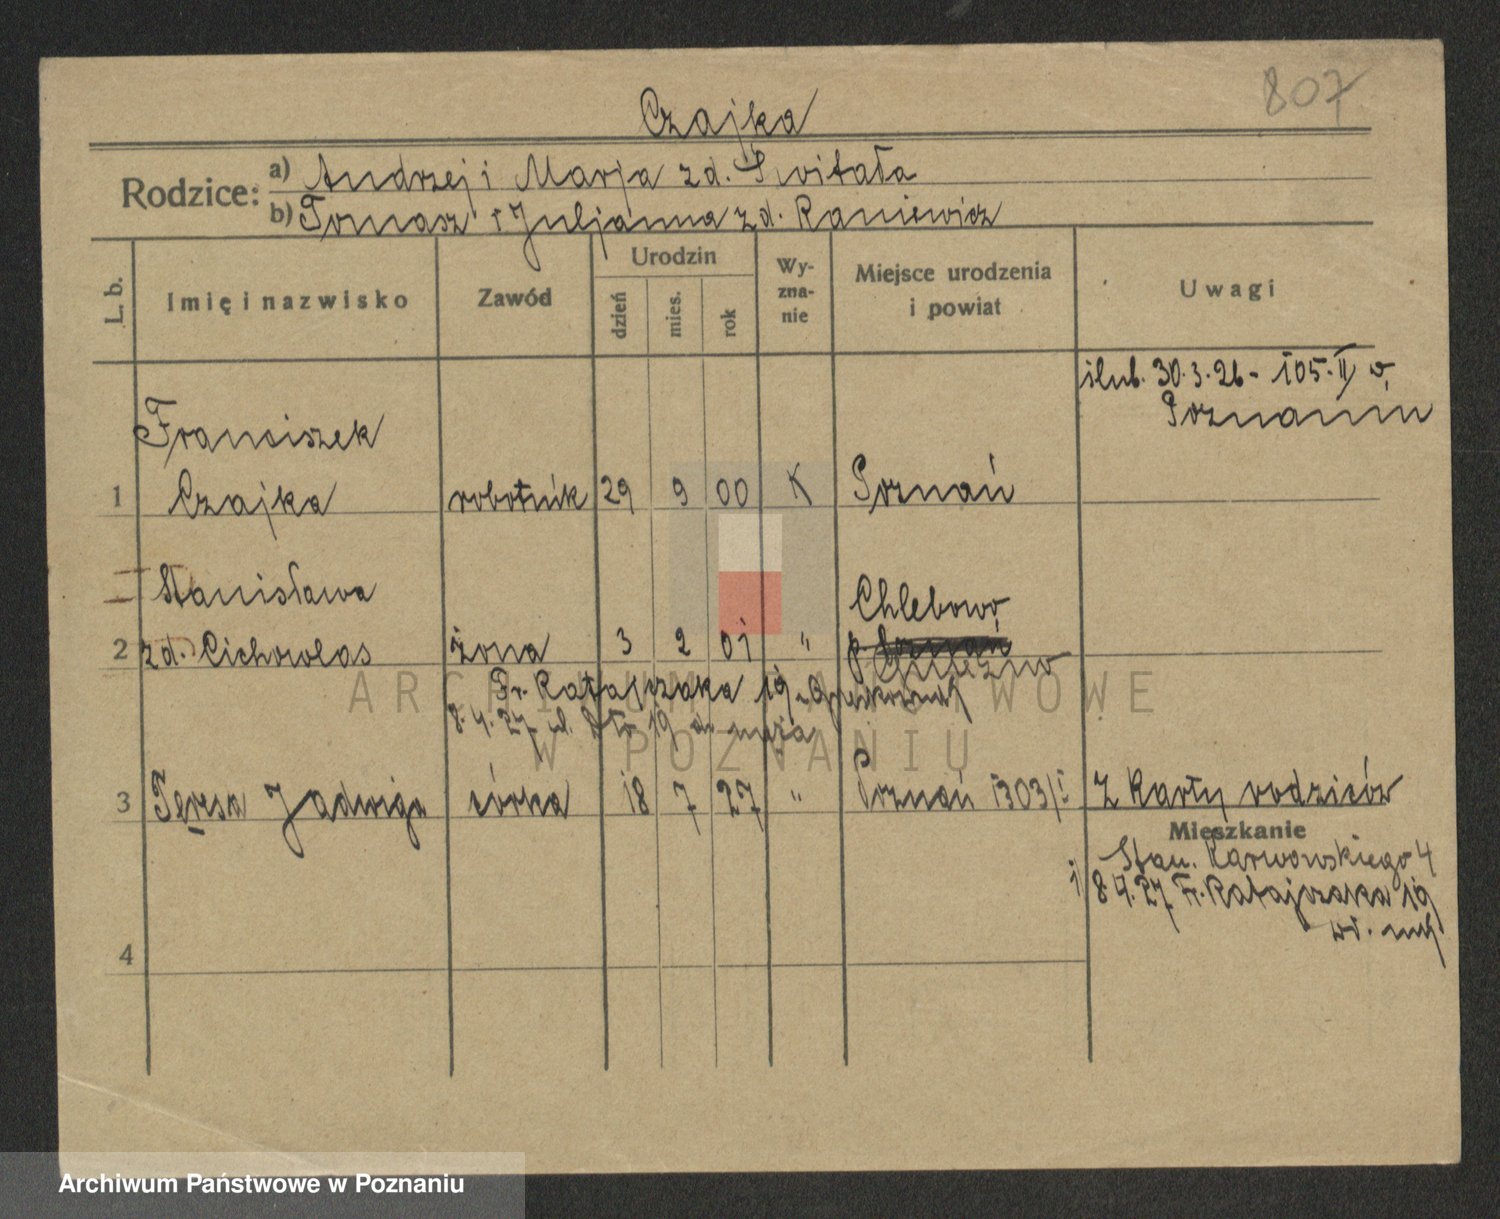 807
Czajka
Rodzice:
a) Andrzej i Marja zd. Świtała
b) Tomasz i Juljanna zd. Raniewicz
L. b.
Imię i nazwisko
Zawód
Urodzin
dzień
mies.
rok
Wy-
zna-
nie
Miejsce urodzenia
i powiat
Uwagi
ślub. 30.3.26 - 105.II w
Poznaniu
Franciszek
1 Czajka robotnik 29 9 00 K Poznań
Stanisława Chlebowo
2 zd. Cichowlas żona 3 2 01 " p.
Gniezno
Fr. Ratajczaka 19
8.4.27 19
3 Teresa Jadwiga córka 18 7 27 " Poznań 1303/I z karty rodziców
Mieszkanie
Stan. Karwowskiego 4
8.4.27 Fr. Ratajczaka 19
4
ARCHIWUM PAŃSTWOWE
W POZNANIU
Archiwum Państwowe w Poznaniu